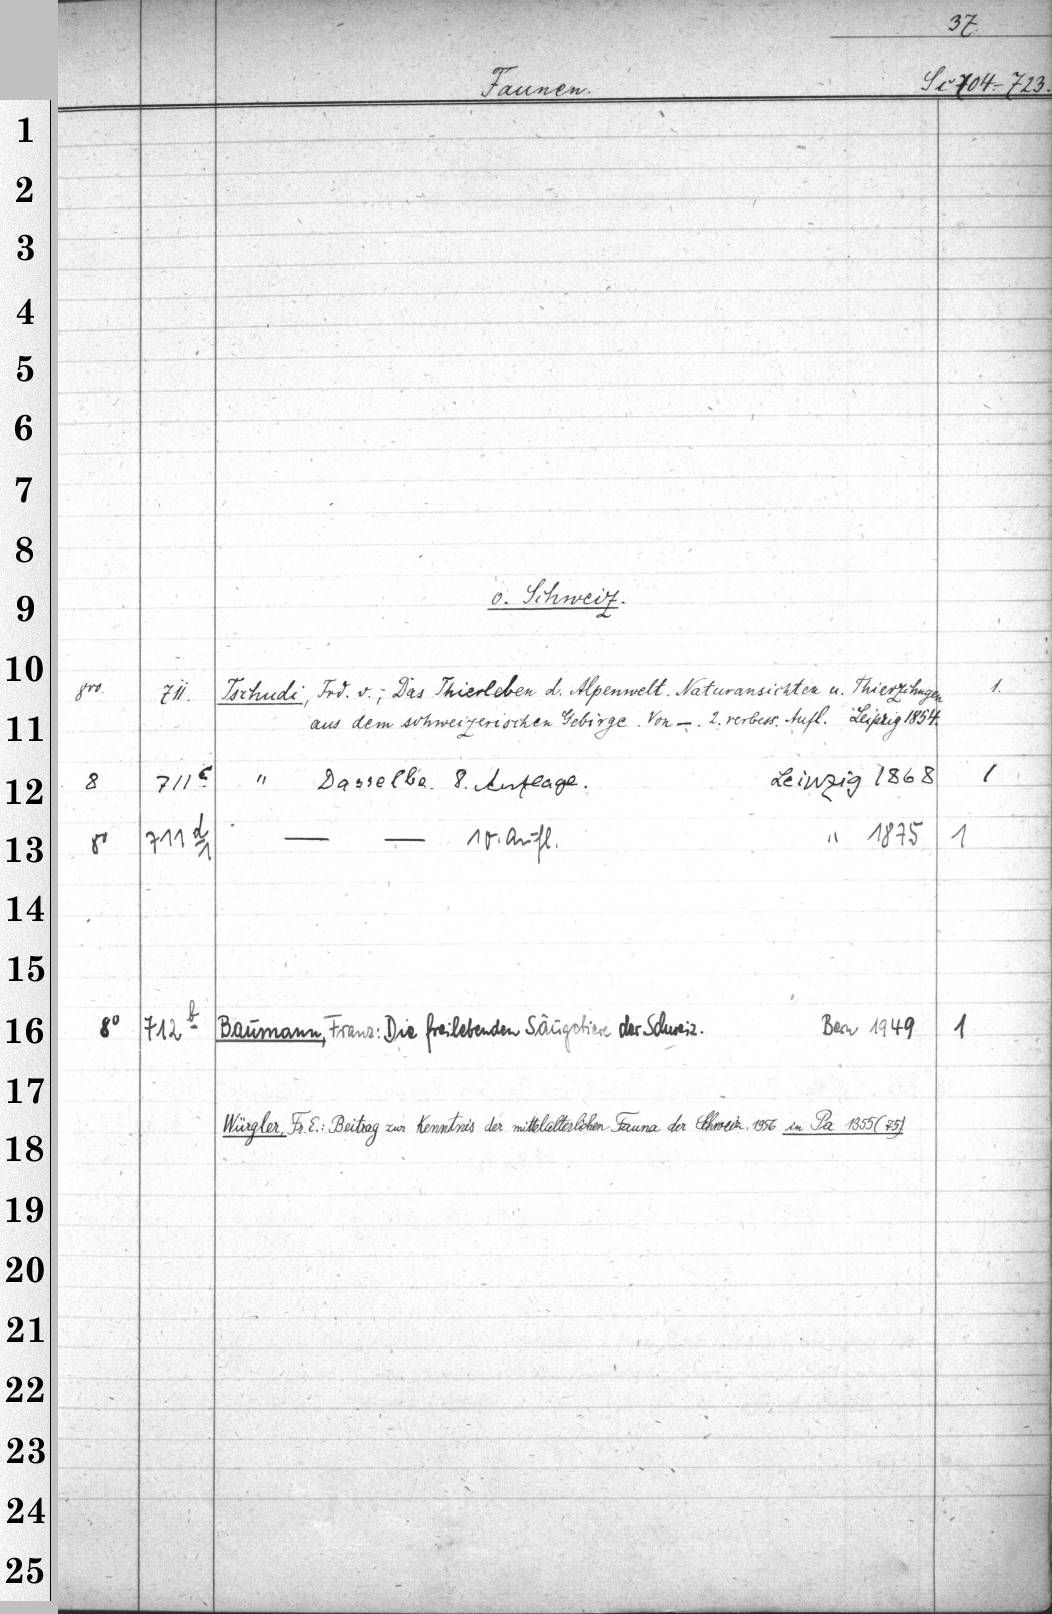 37.
Faunen. Si 704-723.
1
2
3
4
5
6
7
8
9 o. Schweiz.
10
8vo. 711. Tschudi, Frd. v.; Das Thierleben d. Alpenwelt. Naturansichten u. Thierzchngen 1.
11 aus dem schweizerischen Gebirge. Von —. 2. verbess. Aufl. Leipzig 1854.
12 8 711 c " Dasselbe. 8. Auflage. Leipzig 1868 1
13 8° 711 d/1 — — 10. Aufl. " 1875 1
14
15
16 8° 712 b Baumann, Franz: Die freilebenden Säugetiere der Schweiz. Bern 1949 1
17
18 Würgler, Fr. E.: Beitrag zur Kenntnis der mittelalterlichen Fauna der Schweiz. 1956 in Pa 1355(75)
19
20
21
22
23
24
25